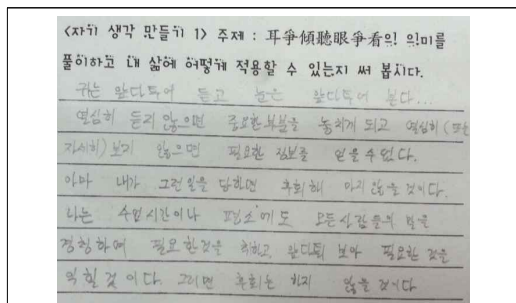 <자기 생각 만들기 1> 주제 : 耳爭傾聽眼爭看의 의미를
풀이하고 내 삶에 어떻게 적용할 수 있는지 써 봅시다.
귀는 앞다투어 듣고 눈은 앞다투어 본다...
열심히 듣지 않으면 중요한 부분을 놓치게 되고 열심히 (또는
자세히) 보지 않으면 필요한 정보를 얻을 수 없다.
아마 내가 그런 일을 당하면 후회해 마지 않을 것이다.
나는 수업시간이나 평소에도 모든 사람들의 말을
경청하여 필요한 것을 취하고, 앞다퉈 보아 필요한 것을
익힐 것이다. 그러면 후회는 하지 않을 것이다